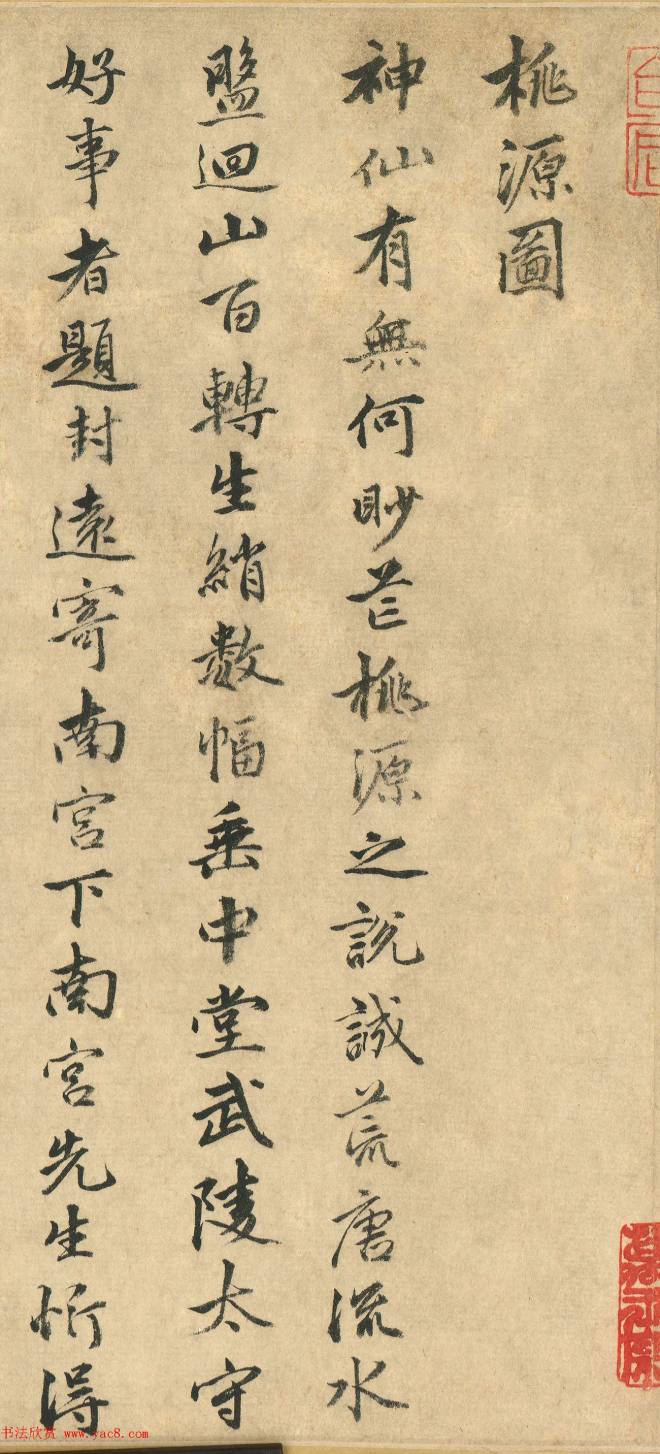 桃源圖
神仙有無何眇芒桃源之說誠荒唐流水
盤迴山百轉生綃数幅垂中堂武陵太守
好事者題封遠寄南宮下南宮先生忻得
书法欣赏 www.yac8.com